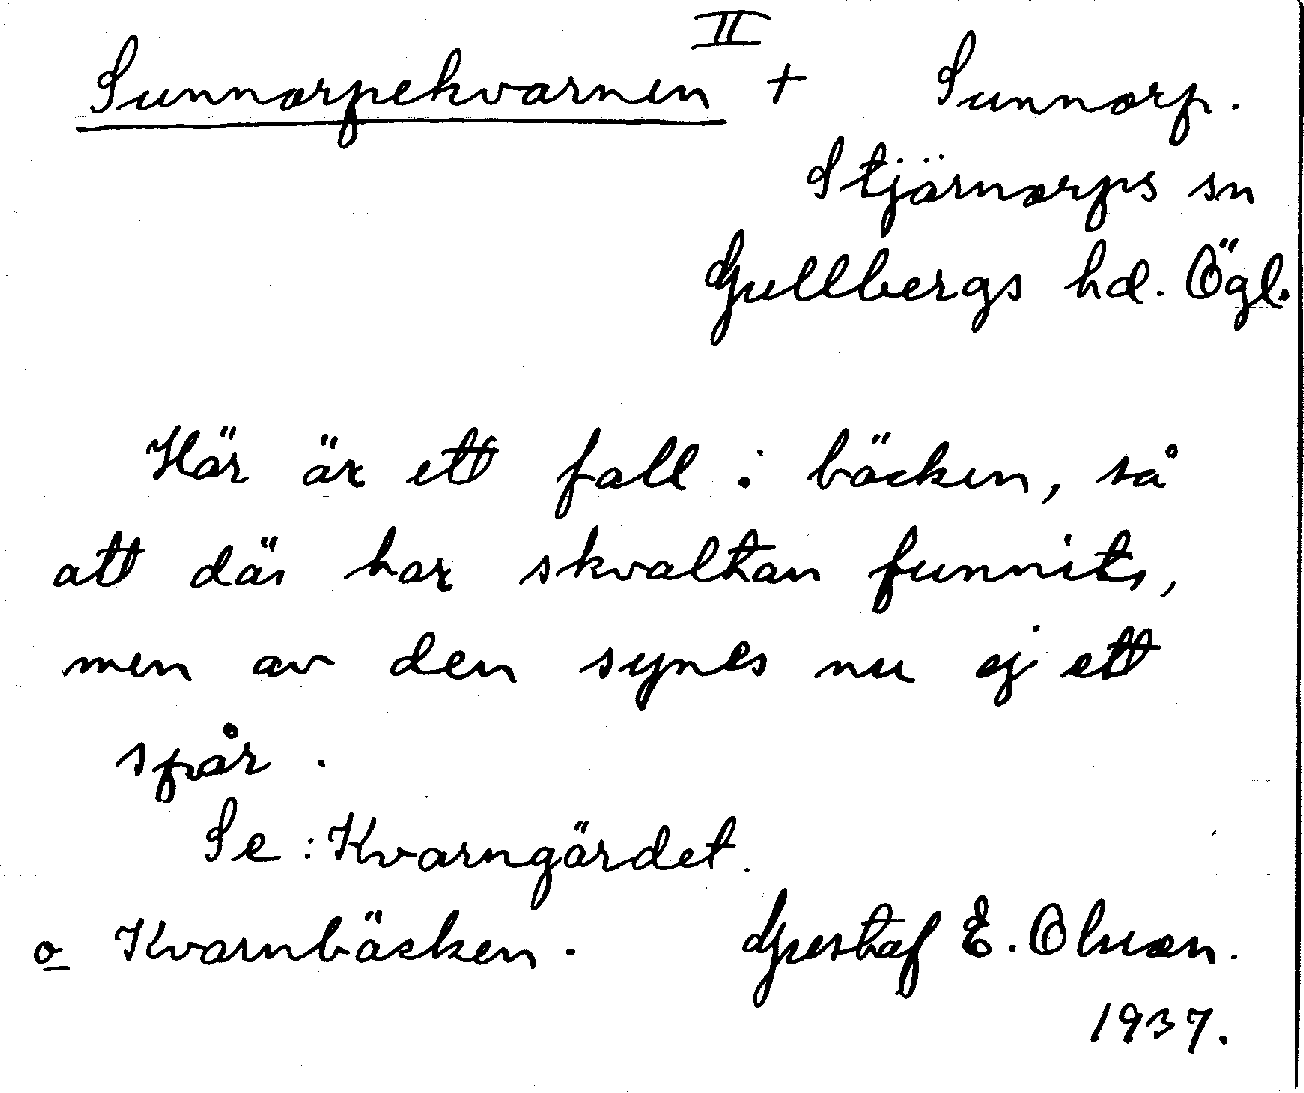 Sunnorpekvarnen II + Sunnorp.
Stjärnorps sn
Gullbergs hd. Ögl.
Här är ett fall i bäcken, så
att där har skvaltan funnits,
men av den synes nu ej ett
spår.
Se: Kvarngärdet.
o Kvarnbäcken. Gustaf E. Olsson.
1937.